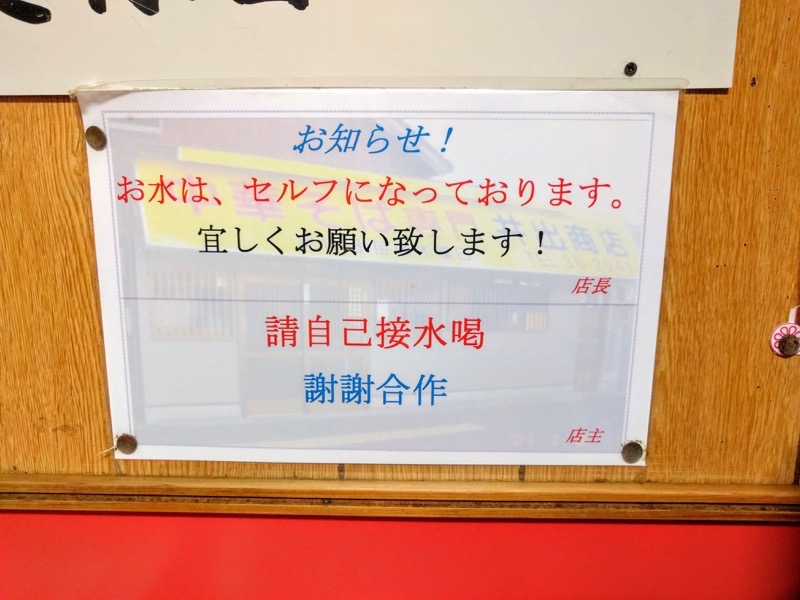 お知らせ！
お水は、セルフになっております。
宜しくお願い致します！
店長
請自己接水喝
謝謝合作
店主